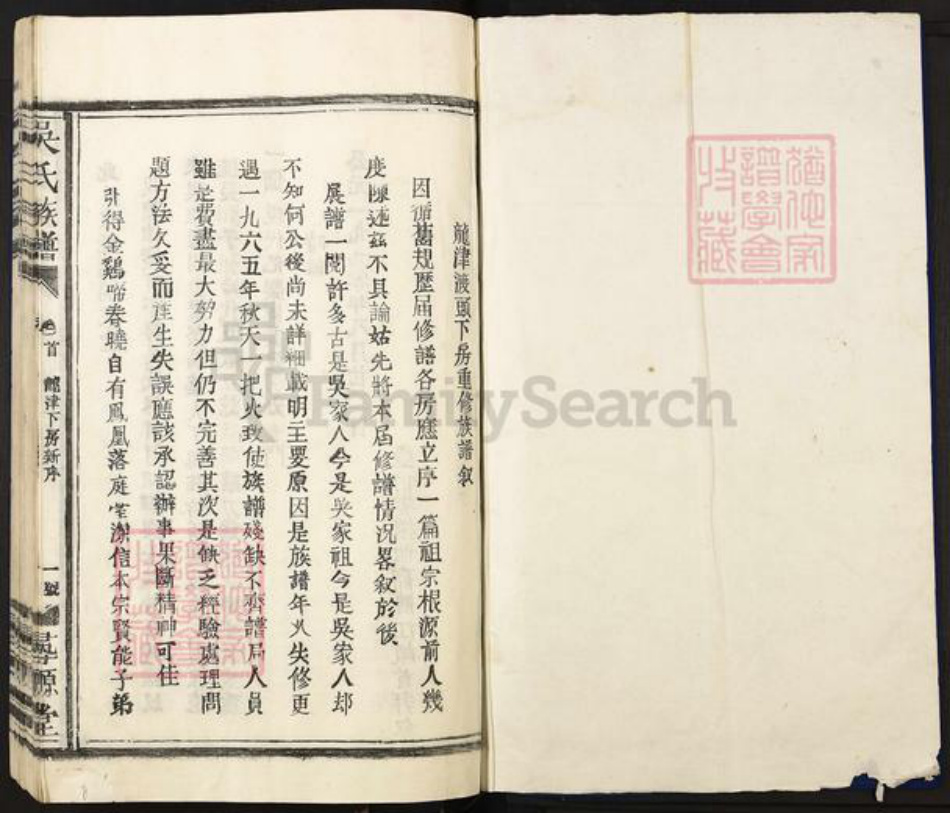 龍津渡頭下房重修族譜叙
因循舊規歷屆修譜各房應立序一篇祖宗根源前人幾
度陳述茲不具論姑先將本屆修譜情況畧叙於後
展譜一閱許多古是吳家人今是吳家祖今是吳家人却
不知何公後尚未詳細載明主要原因是族譜年久失修更
遇一九六五年秋天一把火致使族譜殘缺不齊譜局人員
雖是費盡最大努力但仍不完善其次是缺乏經驗處理問
題方法欠妥而產生失誤應該承認辦事果斷精神可佳
引得金鷄啼春曉自有鳳凰落庭堂深信本宗賢能子弟
吳氏族譜
卷首
龍津下房新序
一號
尋源堂
猶他家
譜學會
收藏
FamilySearch